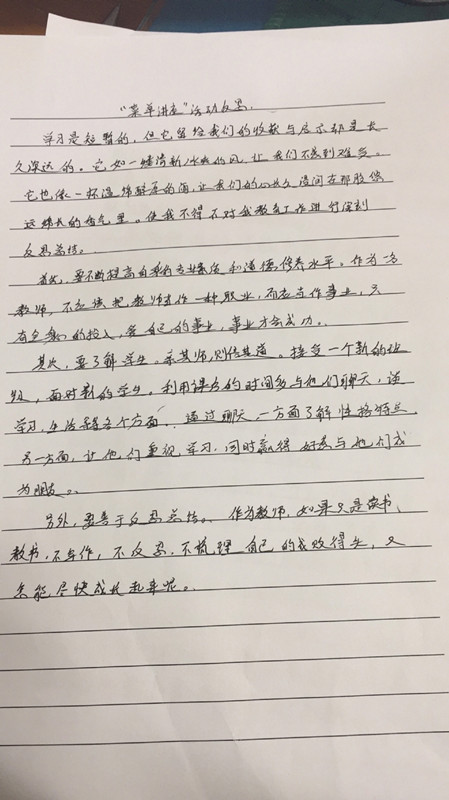 “菜单讲座”活动反思.
学习是短暂的，但它留给我们的收获与启示却是长
久深远的。它如一缕清新冰爽的风，让我们不感到难忘。
它也像一杯温纯醇厚的酒，让我们的心长久浸润在那股悠
远绵长的香气里。使我不得不对我教育工作进行深刻
反思总结。
首先，要不断提高自身的专业素质和道德修养水平。作为一名
教师，不应该把教师当作一种职业，而应当作事业，只
有全身的投入，爱自己的事业，事业才会成功。
其次，要了解学生。亲其师，则信其道。接受一个新的班
级，面对新的学生。利用课多的时间多与他们聊天，谈
学习，生活等各个方面。通过聊天一方面了解性格特点，
另一方面，让他们重视学习，同时赢得好感与他们成
为朋友。
另外，要善于反思总结。作为教师，如果只是读书、
教书，不写作，不反思，不梳理自己的成败得失，又
怎能尽快成长起来呢。